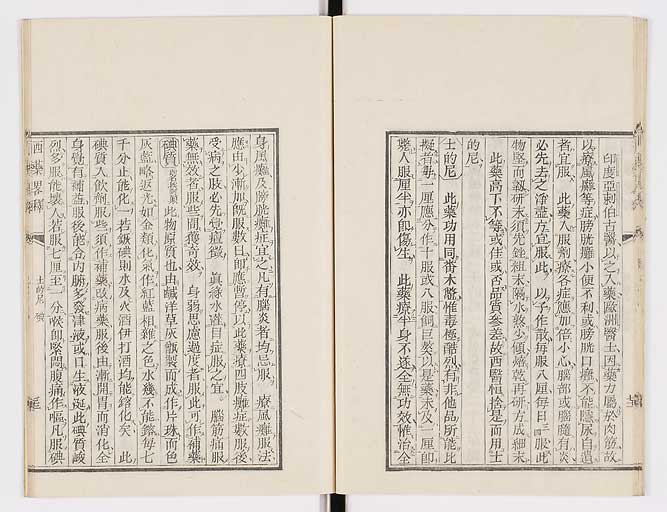 印度亞剌伯古醫以之入藥歐洲醫士因藥力屬於肉筋故
以療風癱等症膀胱癱小便不利或膀胱口癱不能隄尿自遺
者宜服 此藥入服劑療各症應加倍小心腦部或腦髓有炎
必先去之淨盡方宜服此 以子作散每服八厘每日三服此
物堅而韌研末須先銼粗末隔水蒸少頃焙乾再研方成細末
此藥高下不等或佳或否品質參差故西醫恒捨是而用士
的尼
士的尼 此藥功用同番木虌惟毒極酷烈有非他品所能比
擬者每一厘應分作十服或八服飼巨獒以是藥未及一厘即
斃人服厘半亦即傷生 此藥療半身不遂全無功效惟治全
身風癱及膀胱癱症宜之凡有腦炎者均忌服 療風癱服法
應由少漸加旣服數日即應暫停以此藥療四肢癱症數服後
受病之肢必先覺癥 眞綠水遮目症服之宜 腦筋痛服
藥無效者服些間獲奇效 身弱思慮過度者服此可作補藥
碘質 此物原質也由鹹洋草灰甑製而成作片珠而色
灰藍略返光如金類化氣作紅藍相雜之色水幾不能鎔每七
千分止能化一若鏾碘則水及火酒伊打酒均能鎔化矣 此
碘質入飲劑服些須作補藥改病藥服後由漸開胃而消化全
身覺有補益服後能令內腑多發津液或口生液涎此碘質峻
烈多服能壞人若服七厘至一分喉即緊悶腹痛作嘔凡服碘
西藥畧釋
士的尼 碘